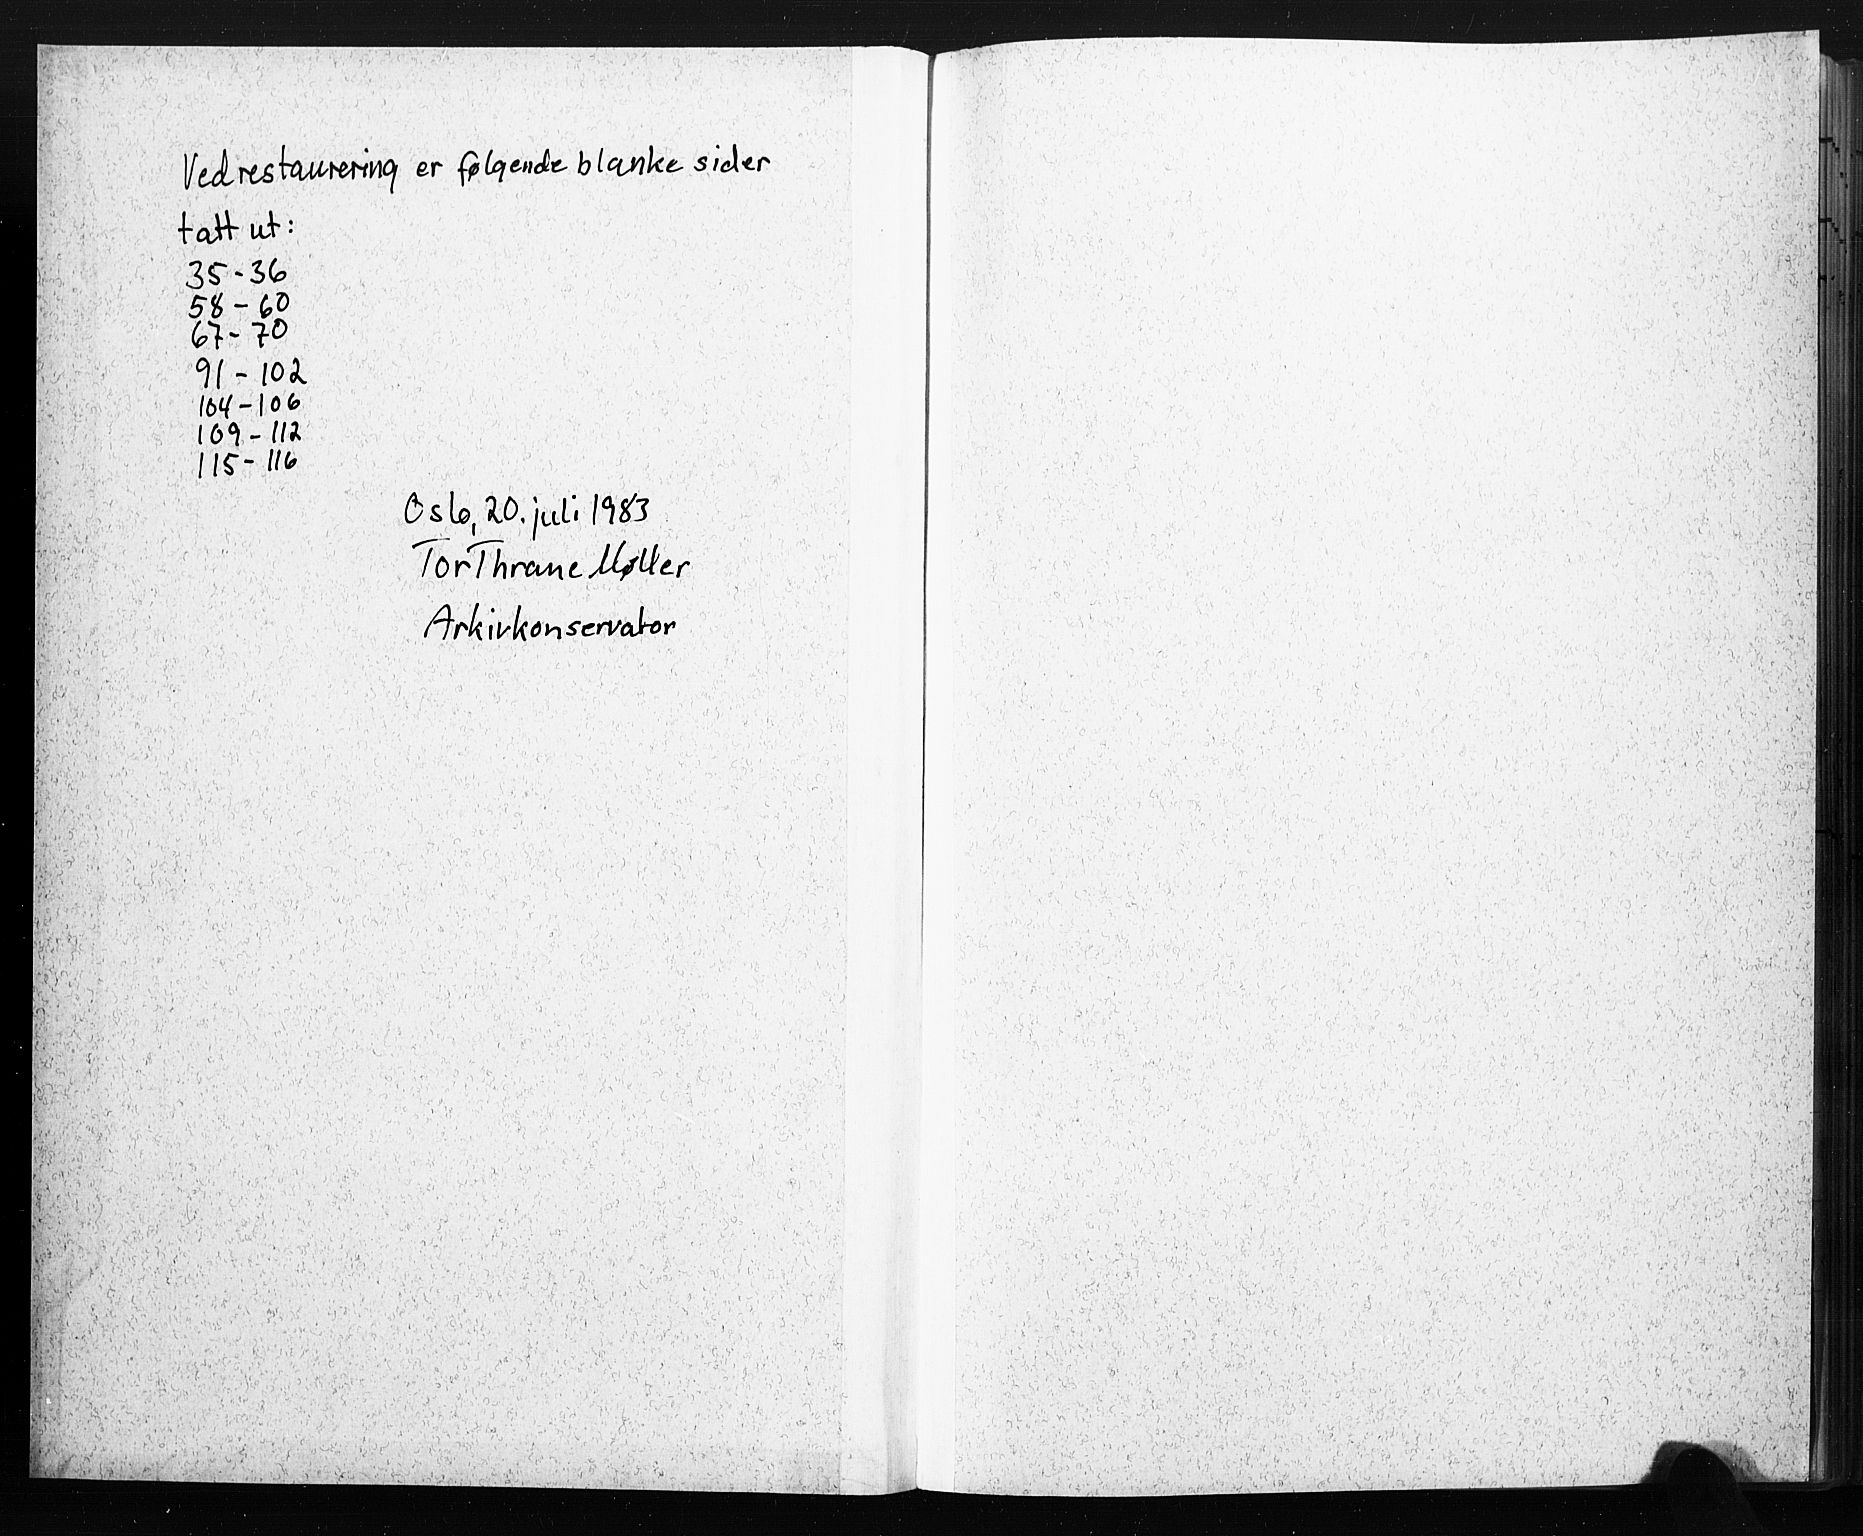 Ved restaurering er følgende blanke sider
tatt ut:
35-36
58-60
67-70
91-102
104-106
109-112
115-116
Oslo, 20. juli 1983
Tor Thrane Møller
Arkivkonservator